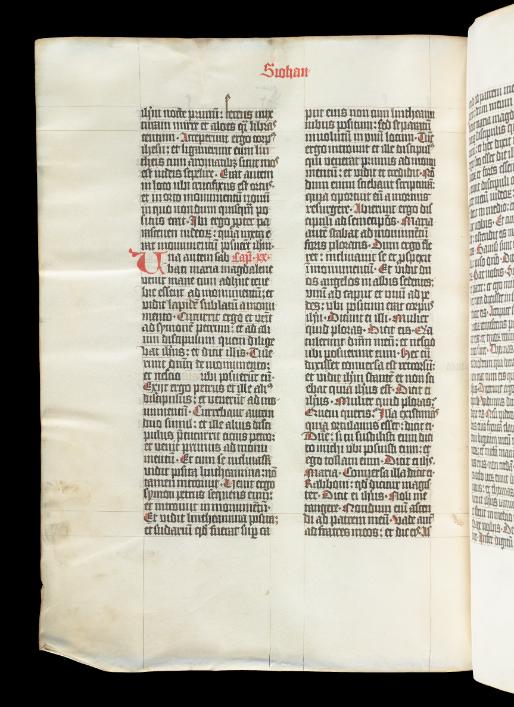 S Johan
ihm nocte primum: ferens mix
turam mirre et aloes q̃ libras
centum. Acceperunt ergo corpꝰ
ihesu: et ligauerunt eum lin
theis cum aromatibꝫ sicut mos
est iudeis sepelire. Erat autem
in loco ubi crucifixus est ortꝰ:
et in orto monumentũ nouũ
in quo nondum quisq̃ᷓ po
situs erat. Ibi ergo ppter pa
rasceuen iudeoꝝ: quia iuxta e
rat monumentũ posuerũt ihm.
Una autem sab Capᷓ. xx.
bati maria magdalene
venit mane cum adhuc tene
bre essent ad monumentũ: et
vidit lapidẽ sublatũ a monu
mento. Cucurrit ergo et veĩt
ad symonẽ petrum: et ad ali
um discipulum quem dilige
bat ihũs: et dicit illis. Tule
runt dñm de monumento:
et nescio ubi posuerũt eũ.
Exijt ergo petrus et ille aliꝰ
discipulus: et venerũt ad mo
numentũ. Currebant autem
duo simul: et ille alius disci
pulus p̃cucurrit cicius petro:
et venit primus ad monu
mentũ. Et cum se inclinasset
vidit posita linthẽamina nõ
tamen introiuit. Venit ergo
symon petrus sequens eum:
et introiuit in monumentũ.
Et vidit linthẽamina posita:
et sudariũ qđ fuerat sup ca
put eius non cum linthẽami
nibus positum: sed separati
inuolutũ in vnũ locum. Tũc
ergo introiuit et ille discipulꝰ
qui venerat primus ad monu
mentũ: et vidit et credidit. Nõ
dum enim sciebant scripturã:
quia oportuit eũ a mortuis
resurgere. Abierunt ergo dis
cipuli ad semetip̃os. Maria
autẽ stabat ad monumentũ
foris plorans. Dum ergo fle
ret: inclinauit se et prospexit
ĩ monumentũ. Et vidit du
os angelos in albis sedentes:
vnũ ad caput et vnũ ad pe
des: ubi positum erat corpꝰ
ihũ. Dicunt ei illi. Mulier
quid ploras. Dicit eis. Quia
tulerunt dñm meũ: et nescio
ubi posuerunt eum. Hec cũ
dixisset conuersa est retrorsũ:
et vidit ihũm stantẽ et non sci
ebat quia ihũs est. Dicit ei
ihũs. Mulier quid ploras:
Quem queris: Illa existimãs
quia ortulanus esset: dicit ei.
Dñe: si tu sustulisti eum dici
to michi ubi posuisti eum: et
ego tollam eum. Dicit ei ihs.
Maria. Conuersa illa dicit ei.
Rabboni: qđ dicitur magis
ter. Dicit ei ihũs. Noli me
tangere. Nondum enĩ ascen
di ad patrem meũ. Vade autẽ
ad fratres meos: et dic eis As